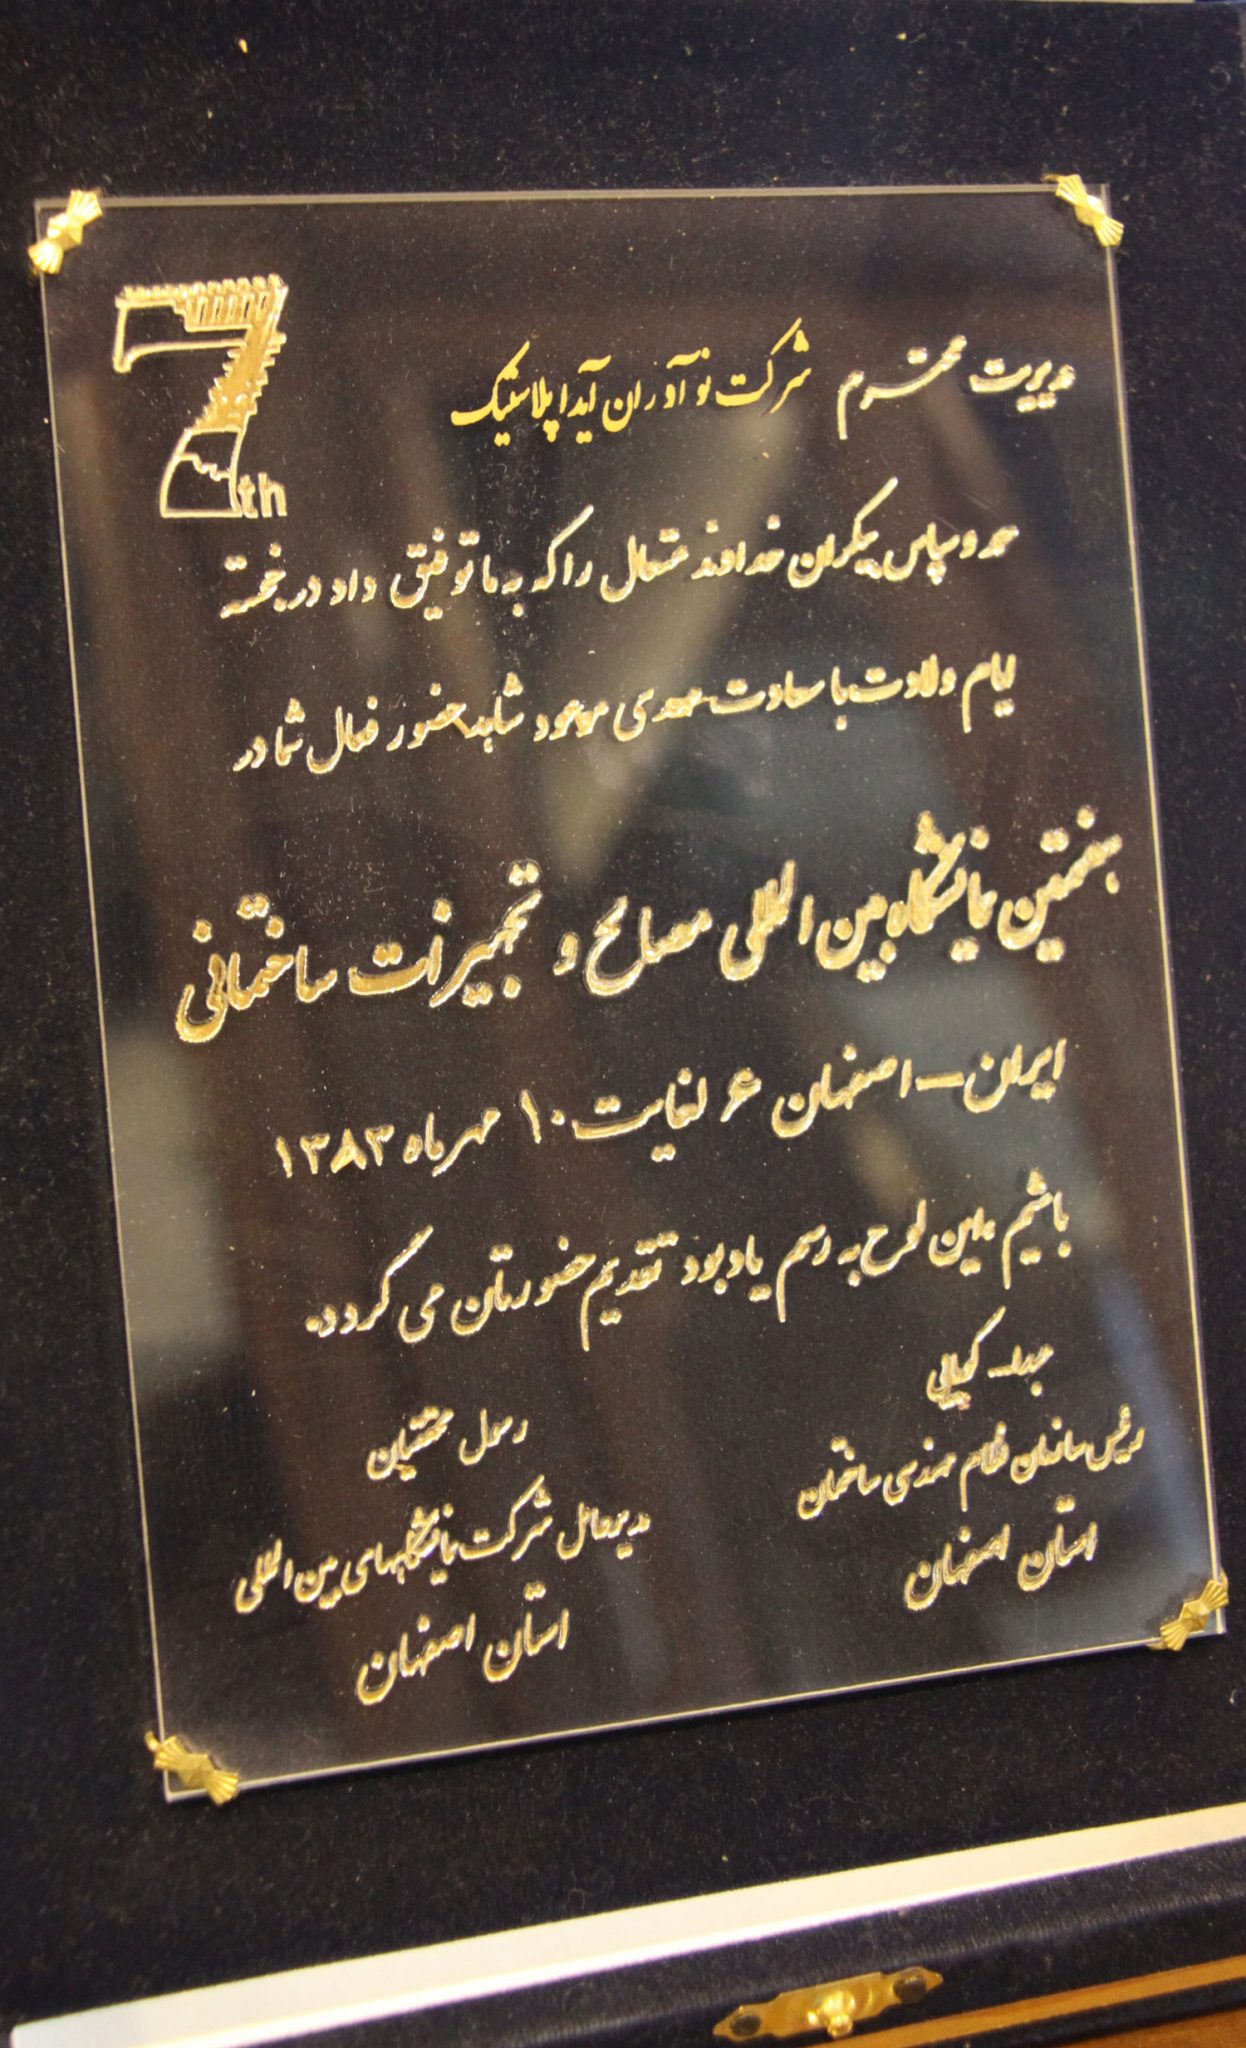 7th
مدیریت محترم شرکت نوآوران آیدا پلاستیک
حمد و سپاس بیکران خداوند متعال را که به ما توفیق داد در خجسته
ایام ولادت با سعادت مهدی موعود شاهد حضور فعال شما در
هفتمین نمایشگاه بین المللی مصالح و تجهیزات ساختمانی
ایران - اصفهان ۶ لغایت ۱۰ مهر ماه ۱۳۸۳
باشیم، این لوح به رسم یادبود تقدیم حضورتان می گردد.
رئیس سازمان نظام مهندسی ساختمان
استان اصفهان
رسول محققیان
مدیرعامل شرکت نمایشگاههای بین المللی
استان اصفهان